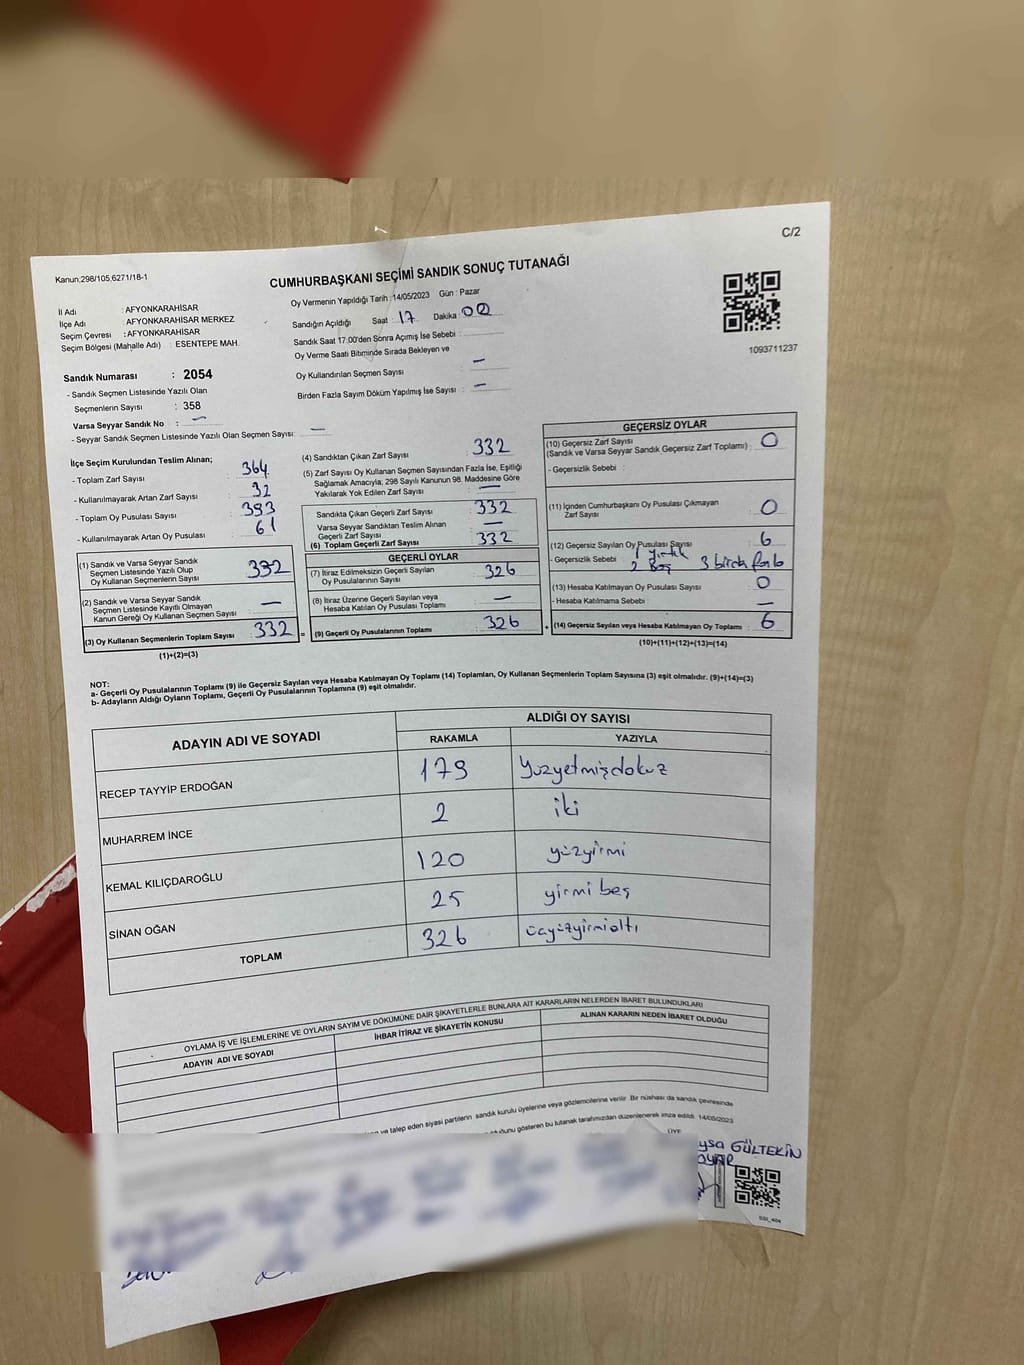 C/2
Kanun:298/105,6271/18-1
CUMHURBAŞKANI SEÇİMİ SANDIK SONUÇ TUTANAĞI
İl Adı : AFYONKARAHİSAR
İlçe Adı : AFYONKARAHİSAR MERKEZ
Seçim Çevresi : AFYONKARAHİSAR
Seçim Bölgesi (Mahalle Adı) : ESENTEPE MAH.
Oy Vermenin Yapıldığı Tarih : 14/05/2023 Gün : Pazar
Sandığın Açıldığı Saat : 17 Dakika : 00
Sandık Saat 17:00'den Sonra Açımış İse Sebebi :
Oy Verme Saati Bitiminde Sırada Bekleyen ve
Oy Kullandırılan Seçmen Sayısı : —
Birden Fazla Sayım Döküm Yapılmış İse Sayısı : —
1093711237
Sandık Numarası : 2054
- Sandık Seçmen Listesinde Yazılı Olan
Seçmenlerin Sayısı : 358
Varsa Seyyar Sandık No : —
- Seyyar Sandık Seçmen Listesinde Yazılı Olan Seçmen Sayısı: —
İlçe Seçim Kurulundan Teslim Alınan;
- Toplam Zarf Sayısı : 364
- Kullanılmayarak Artan Zarf Sayısı : 32
- Toplam Oy Pusulası Sayısı : 393
- Kullanılmayarak Artan Oy Pusulası : 61
(1) Sandık ve Varsa Seyyar Sandık
Seçmen Listesinde Yazılı Olup
Oy Kullanan Seçmenlerin Sayısı : 332
(2) Sandık ve Varsa Seyyar Sandık
Seçmen Listesinde Kayıtlı Olmayan
Kanun Gereği Oy Kullanan Seçmen Sayısı : —
(3) Oy Kullanan Seçmenlerin Toplam Sayısı : 332 =
(1)+(2)=(3)
(4) Sandıktan Çıkan Zarf Sayısı : 332
(5) Zarf Sayısı Oy Kullanan Seçmen Sayısından Fazla İse, Eşitliği
Sağlamak Amacıyla; 298 Sayılı Kanunun 98. Maddesine Göre
Yakılarak Yok Edilen Zarf Sayısı : —
Sandıkta Çıkan Geçerli Zarf Sayısı : 332
Varsa Seyyar Sandıktan Teslim Alınan
Geçerli Zarf Sayısı : —
(6) Toplam Geçerli Zarf Sayısı : 332
GEÇERLİ OYLAR
(7) İtiraz Edilmeksizin Geçerli Sayılan
Oy Pusulasının Sayısı : 326
(8) İtiraz Üzerine Geçerli Sayılan veya
Hesaba Katılan Oy Pusulası Toplamı : —
(9) Geçerli Oy Pusulalarının Toplamı : 326 +
GEÇERSİZ OYLAR
(10) Geçersiz Zarf Sayısı
(Sandık ve Varsa Seyyar Sandık Geçersiz Zarf Toplamı) : 0
- Geçersizlik Sebebi :
(11) İçinden Cumhurbaşkanı Oy Pusulası Çıkmayan
Zarf Sayısı : 0
(12) Geçersiz Sayılan Oy Pusulası Sayısı : 6
- Geçersizlik Sebebi : 1 yırtık
2 Boş 3 birden fazla
(13) Hesaba Katılmayan Oy Pusulası Sayısı : 0
- Hesaba Katılmama Sebebi : —
(14) Geçersiz Sayılan veya Hesaba Katılmayan Oy Toplamı : 6
(10)+(11)+(12)+(13)=(14)
NOT:
a- Geçerli Oy Pusulalarının Toplamı (9) ile Geçersiz Sayılan veya Hesaba Katılmayan Oy Toplamı (14) Toplamları, Oy Kullanan Seçmenlerin Toplam Sayısına (3) eşit olmalıdır. (9)+(14)=(3)
b- Adayların Aldığı Oyların Toplamı, Geçerli Oy Pusulalarının Toplamına (9) eşit olmalıdır.
ADAYIN ADI VE SOYADI
ALDIĞI OY SAYISI
RAKAMLA YAZIYLA
RECEP TAYYİP ERDOĞAN 179 Yüzyetmişdokuz
MUHARREM İNCE 2 iki
KEMAL KILIÇDAROĞLU 120 yüzyirmi
SİNAN OĞAN 25 yirmi beş
TOPLAM 326 üçyüzyirmialtı
OYLAMA İŞ VE İŞLEMLERİNE VE OYLARIN SAYIM VE DÖKÜMÜNE DAİR ŞİKAYETLERLE BUNLARA AİT KARARLARIN NELERDEN İBARET BULUNDUKLARI
ADAYIN ADI VE SOYADI İHBAR İTİRAZ VE ŞİKAYETİN KONUSU ALINAN KARARIN NEDEN İBARET OLDUĞU
ve talep eden siyasi partilerin sandık kurulu üyelerine veya gözlemcilerine verilir. Bir nüshası da sandık çevresinde
gösteren bu tutanak tarafımızdan düzenlenerek imza edildi. 14/05/2023
ÜYE
GÜLTEKİN